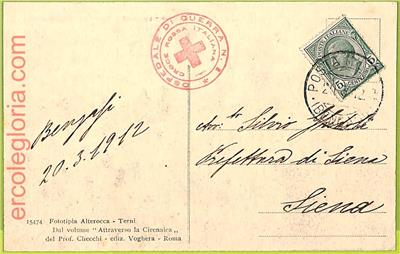 ercolegloria.com
OSPEDALE DI GUERRA N. 2
CROCE ROSSA ITALIANA
POSTE ITALIANE
POSTA
Bengasi
20.3.1912
Avv. Silvio
Prefettura di Siena
Siena
15474 Fototipia Alterocca - Terni
Dal volume "Attraverso la Cirenaica „
del Prof. Checchi - ediz. Voghera - Roma